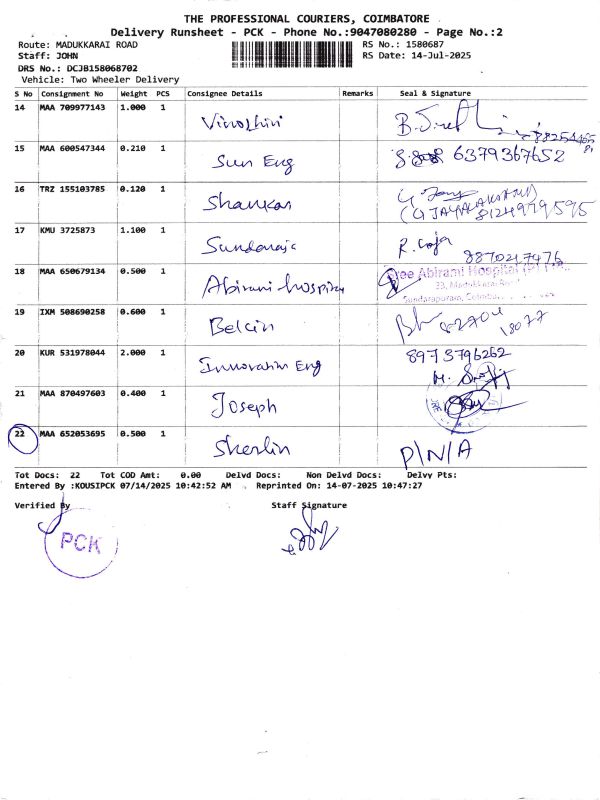 THE PROFESSIONAL COURIERS, COIMBATORE
Delivery Runsheet - PCK - Phone No.:9047080280 - Page No.:2
Route: MADUKKARAI ROAD
RS No.: 1580687
Staff: JOHN
RS Date: 14-Jul-2025
DRS No.: DCJB158068702
Vehicle: Two Wheeler Delivery
S No Consignment No Weight PCS Consignee Details Remarks Seal & Signature
14 MAA 709977143 1.000 1 Vinoshini
15 MAA 600547344 0.210 1 Sun Eng 6379367652
16 TRZ 155103785 0.120 1 Shankar
(G JAYALAKSHMI)
8124999595
17 KMU 3725873 1.100 1 Sundaraja R. Raja
8870217476
18 MAA 650679134 0.500 1 Abirami hospital
Sree Abirami Hospital (P)
33, Madukkarai Road
Sundarapuram, Coimbatore
19 IXM 508690258 0.600 1 Belcin
20 KUR 531978044 2.000 1 Innovation Eng 8973796262
21 MAA 870497603 0.400 1 Joseph
22 MAA 652053695 0.500 1 Sherlin P/N/A
Tot Docs: 22 Tot COD Amt: 0.00 Delvd Docs: Non Delvd Docs: Delvy Pts:
Entered By :KOUSIPCK 07/14/2025 10:42:52 AM Reprinted On: 14-07-2025 10:47:27
Verified By Staff Signature
PCK